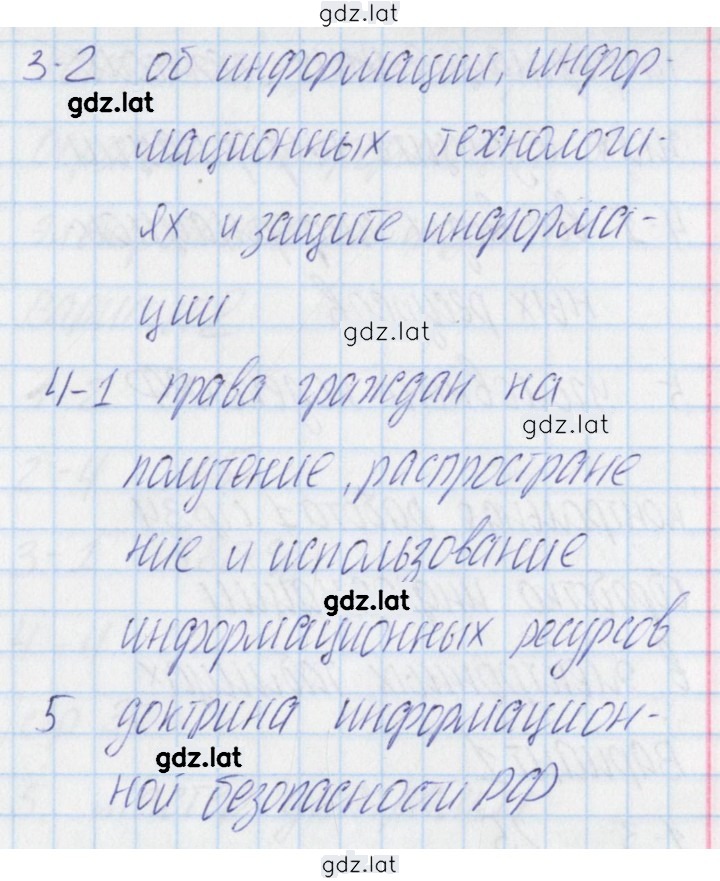 gdz.lat
3-2 об информации, инфор-
gdz.lat
мационных технологи-
ях и защите информа-
ции
gdz.lat
4-1 права граждан на
gdz.lat
получение, распростране
ние и использование
gdz.lat
информационных ресурсов
5 доктрина информацион-
gdz.lat
ной безопасности РФ
gdz.lat